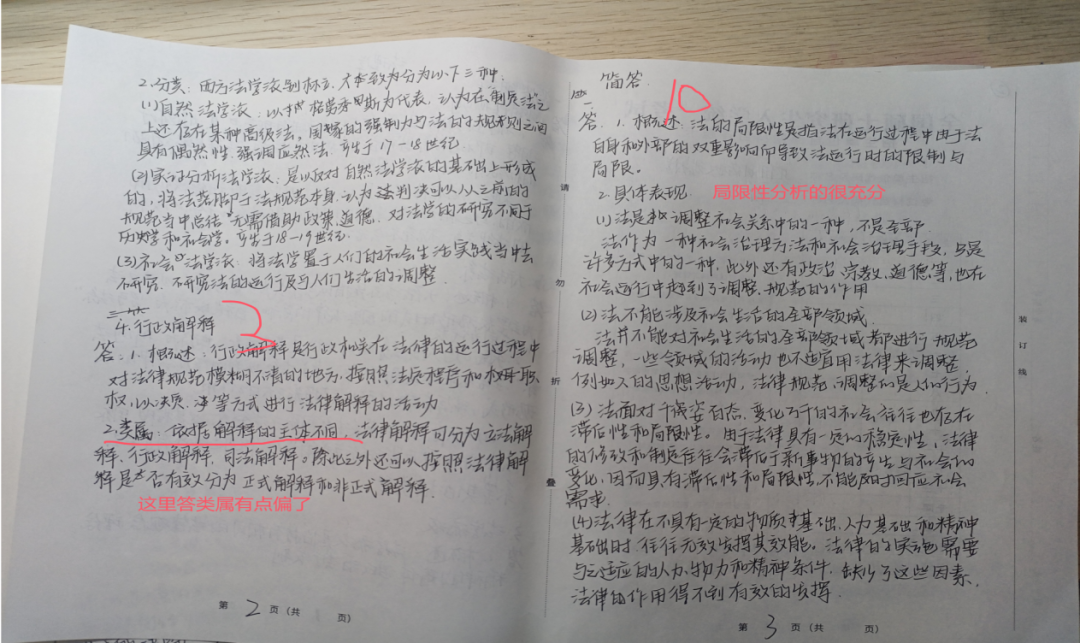 2.分类：西方法学流别林立，大致分为以下三种.
(1)自然法学派：以格劳秀斯为代表，认为在“制定法”之
上还存在某种高级法。国家的强制力与法的规则之间
具有偶然性，强调应然法。产生于17-18世纪.
(2)实证分析法学派：是以反对自然法学派的基础上形成
的，将法学局限于法规范本身，认为法判决可以从之前的
规范当中总结，无需借助政策、道德。对法学的研究不同于
历史学和社会学。产生于18-19世纪.
(3)社会法学派：将法学置于人们的社会生活实践当中去
研究，研究法的运行及与人们生活的调整.
4.行政解释
3
答：1.概述：行政解释是行政机关在法律的运行过程中
对法律规范模糊不清的地方，按照法定程序和权限、职
权，以决定、等方式进行法律解释的活动
2.类属：依据解释的主体不同，法律解释可分为立法解
释、行政解释，司法解释。除此之外还可以按照法律解
释是否有效分为正式解释和非正式解释.
这里答类属有点偏了
第 2 页(共 页)
请
勿
折
叠
简答.
10
一
答：1.概述：法的局限性是指法在运行过程中由于法
自身和外部的双重影响而导致法运行时的限制与
局限。
2.具体表现
局限性分析的很充分
(1)法是调整社会关系中的一种，不是全部.
法作为一种社会治理方法和社会治理手段，只是
许多方式中的一种，此外还有政治、宗教、道德等，也在
社会运行中起到了调整、规范的作用
(2)法不能涉及社会生活的全部领域.
法并不能对社会生活的全部领域都进行规范
调整，一些领域的活动也不适宜用法律来调整，
例如人的思想活动，法律规范、调整的是人们行为.
(3)法面对千姿百态、变化万千的社会往往也存在
滞后性和局限性。由于法律具有一定的稳定性，法律
的修改和制定往往会滞后于新事物的产生与社会的
变化，因而具有滞后性和局限性，不能即时回应社会
需求.
(4)法律在不具有一定的物质基础、人力基础和精神
基础时，往往无效发挥其效能。法律的实施需要
与之适应的人力、物力和精神条件，缺少了这些因素，
法律的作用得不到有效的发挥.
第 3 页(共 页)
装
订
线